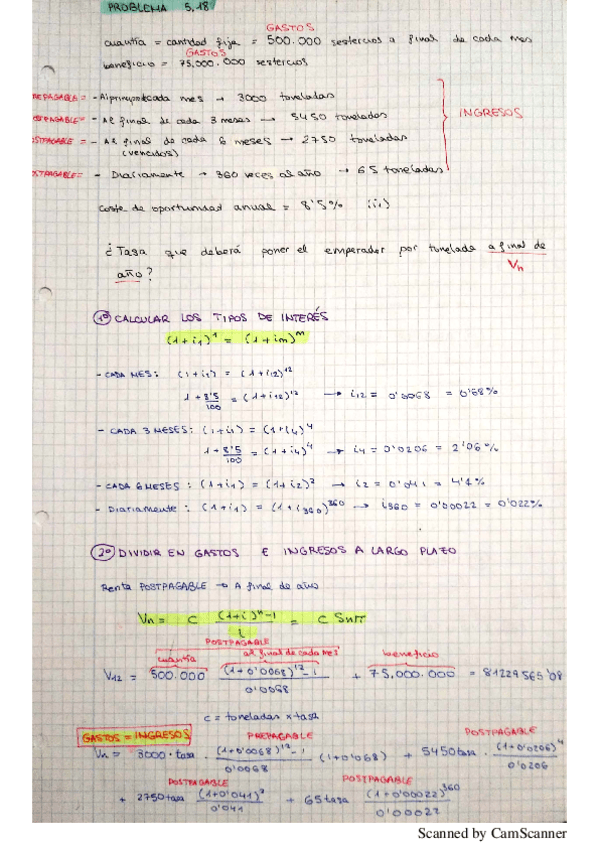 PROBLEMA 5,18
GASTOS
cuantía = cantidad fija = 500.000 sestercios a final de cada mes
GASTOS
beneficio = 75.000.000 sestercios
PREPAGABLE = - Al principio de cada mes → 3000 toneladas
POSTPAGABLE = - Al final de cada 3 meses → 5450 toneladas
INGRESOS
POSTPAGABLE = - Al final de cada 6 meses → 2750 toneladas
(vencidos)
POSTPAGABLE = - Diariamente → 360 veces al año → 65 toneladas
Coste de oportunidad anual = 8'5% (i1)
¿Tasa que deberá poner el emperador por tonelada a final de
año? Vn
1º CALCULAR LOS TIPOS DE INTERÉS
(1+i1)^1 = (1+im)^m
- CADA MES: (1+i1) = (1+i12)^12
1 + 8'5/100 = (1+i12)^12 → i12 = 0'0068 = 0'68%
- CADA 3 MESES: (1+i1) = (1+i4)^4
1 + 8'5/100 = (1+i4)^4 → i4 = 0'0206 = 2'06%
- CADA 6 MESES: (1+i1) = (1+i2)^2 → i2 = 0'041 = 4'1%
- Diariamente: (1+i1) = (1+i360)^360 → i360 = 0'00022 = 0'022%
2º DIVIDIR EN GASTOS E INGRESOS A LARGO PLAZO
Renta POSTPAGABLE → A final de año
Vn = C (1+i)^n - 1 / i = C Sn¬i
POSTPAGABLE
cuantía al final de cada mes beneficio
V12 = 500.000 (1+0'0068)^12 - 1 / 0'0068 + 75.000.000 = 81229565'08
C = toneladas x tasa
GASTOS = INGRESOS PREPAGABLE POSTPAGABLE
Vn = 3000 · tasa · (1+0'0068)^12 - 1 / 0'0068 (1+0'0068) + 5450 tasa · (1+0'0206)^4 / 0'0206
POSTPAGABLE POSTPAGABLE
+ 2750 tasa (1+0'041)^2 / 0'041 + 65 tasa (1+0'00022)^360 / 0'00022
Scanned by CamScanner